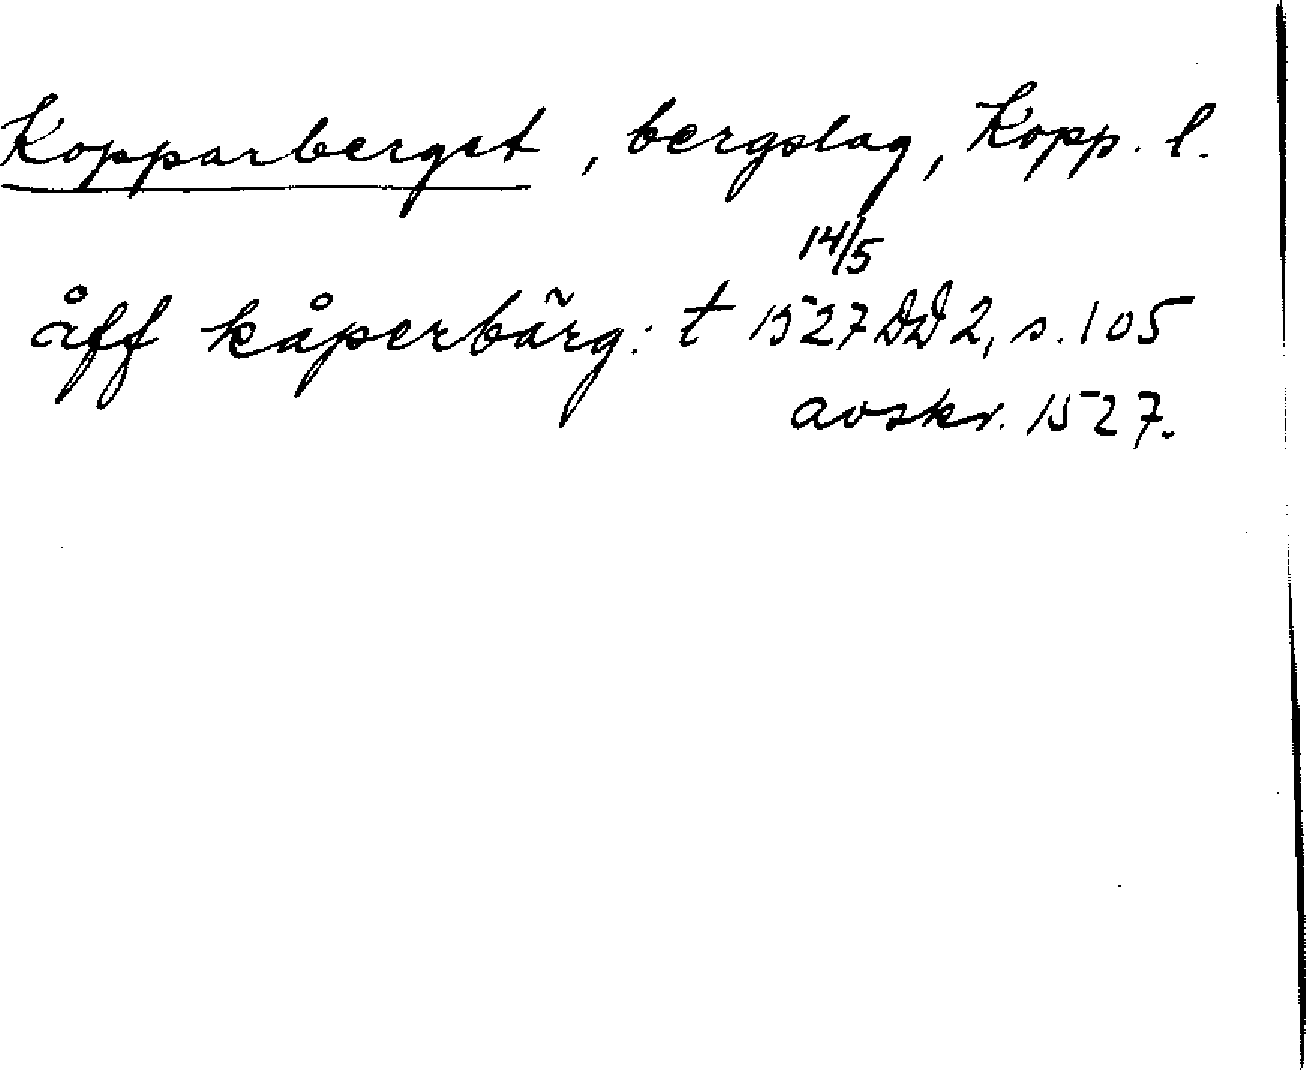 Kopparberget, bergslag, Kopp. l.
14/5
åff kåperbärg: t 1527 DD 2, s. 105
avskr. 1527.